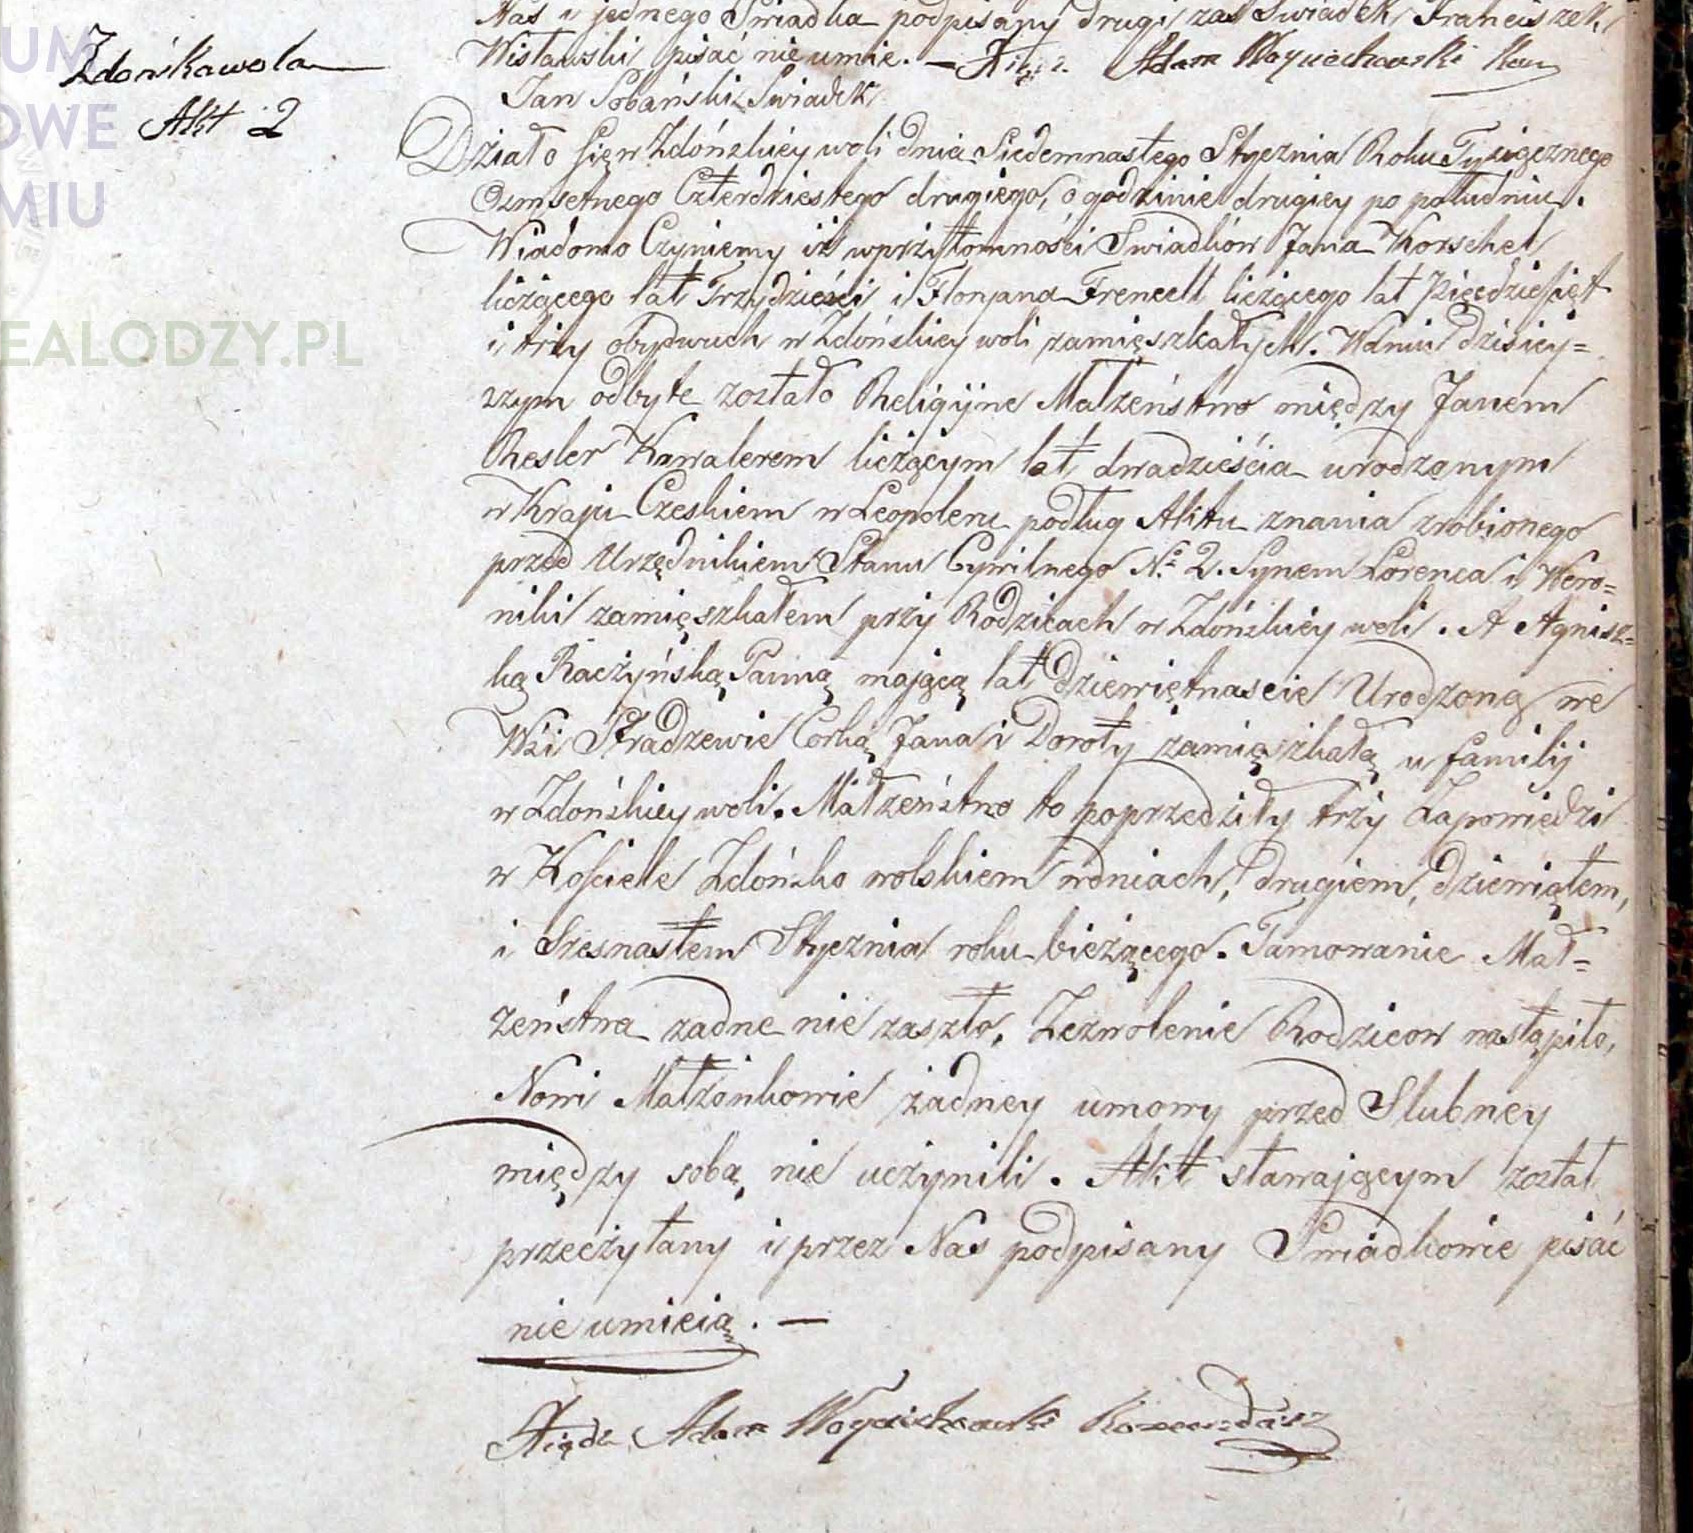 Nas i jednego Swiadka podpisany drugi zas Swiadek Franciszek
Wisławski pisać nie umie. — Adam Woyciechowski
Jan Sobański Swiadek
Zdońskawola
Akt 2
Działo się w Zdońskiey woli dnia Siedemnastego Stycznia Roku Tysiącznego
Osmsetnego Czterdziestego drugiego, o godzinie drugiey po południu.
Wiadomo Czyniemy iż w przytomności Swiadków Jana Korschel
liczącego lat Trzydzieści i Floryana Frencell liczącego lat Pięcdziesiąt
i trzy obydwuch w Zdońskiey woli zamięszkałych. W dniu dzisiey=
szym odbyte zostało Religijne Małżeństwo między Janem
Resler Kawalerem liczącym lat dwadzieścia urodzonym
w Kraju Czeskiem w Leopoleru podług Aktu znania zrobionego
przed Urzędnikiem Stanu Cywilnego No. 2. Synem Lorenca i Wero=
niki zamięszkałem przy Rodzicach w Zdońskiey woli. A Agnisz=
ką Raczyńską Panną mającą lat dziewiętnascie Urodzoną we
Wsi Stradzewie Corką Jana i Doroty zamięszkałą u familij
w Zdońskiey woli. Małżeństwo to poprzedziły trzy Zapowiedzi
w Kościele Zdońsko wolskiem w dniach, drugiem, dziewiątem,
i Szesnastem Stycznia roku bieżącego. Tamowanie Mał=
żeństwa żadne nie zaszło. Zezwolenie Rodziców nastąpiło,
Nowi Małżonkowie żadney umowy przed Slubney
między sobą nie uczynili. Akt stawającym został
przeczytany i przez Nas podpisany Swiadkowie pisać
nie umieią. —
Xiądz Adam Woyciechowski Komendarz
UM
OWE
MIU
EALODZY.PL